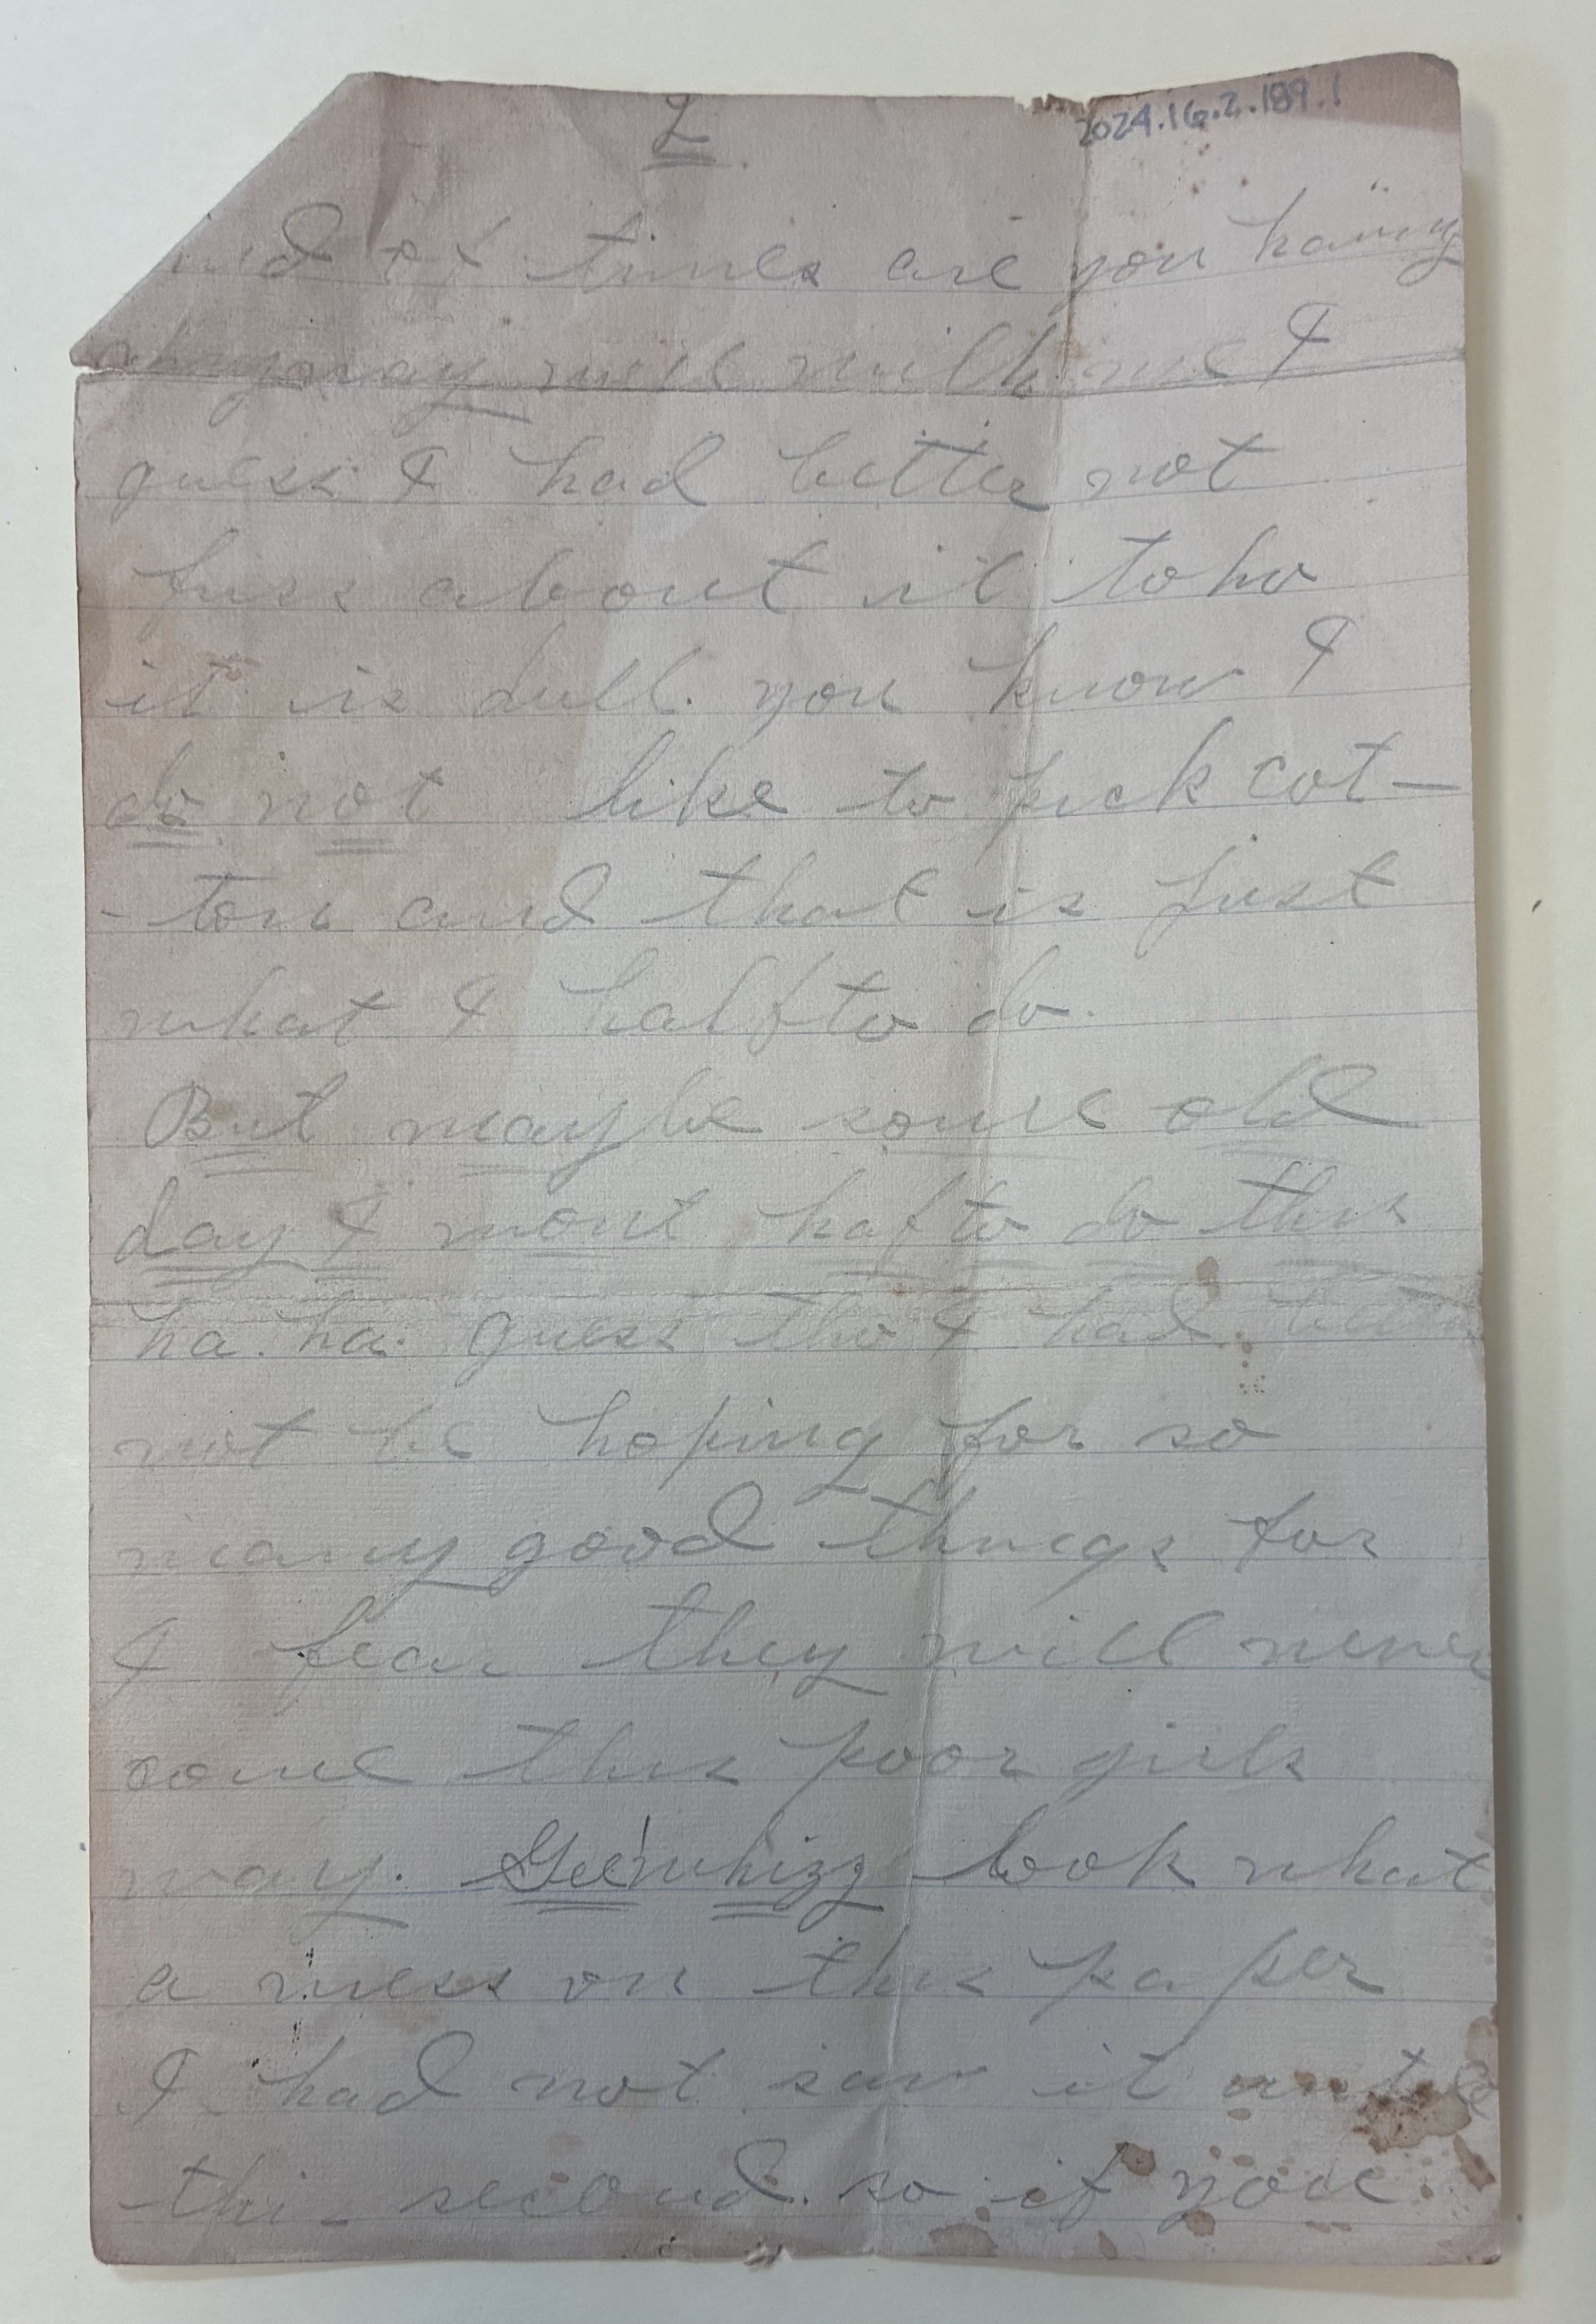 2
2024.16.2.189.1
ind of times are you having
anyway well with me I
guess I had better not
fuss about it to ho
it is dull. you know I
do not like to pick cot-
-ton and that is just
what I half to do.
But maybe some old
day I wont haf to do this
ha. ha. guess tho I had better
not be hoping for so
many good things for
I fear they will never
come this poor girls
way. Gee'whizz look what
a mess on this paper
I had not saw it until
this second. so if you